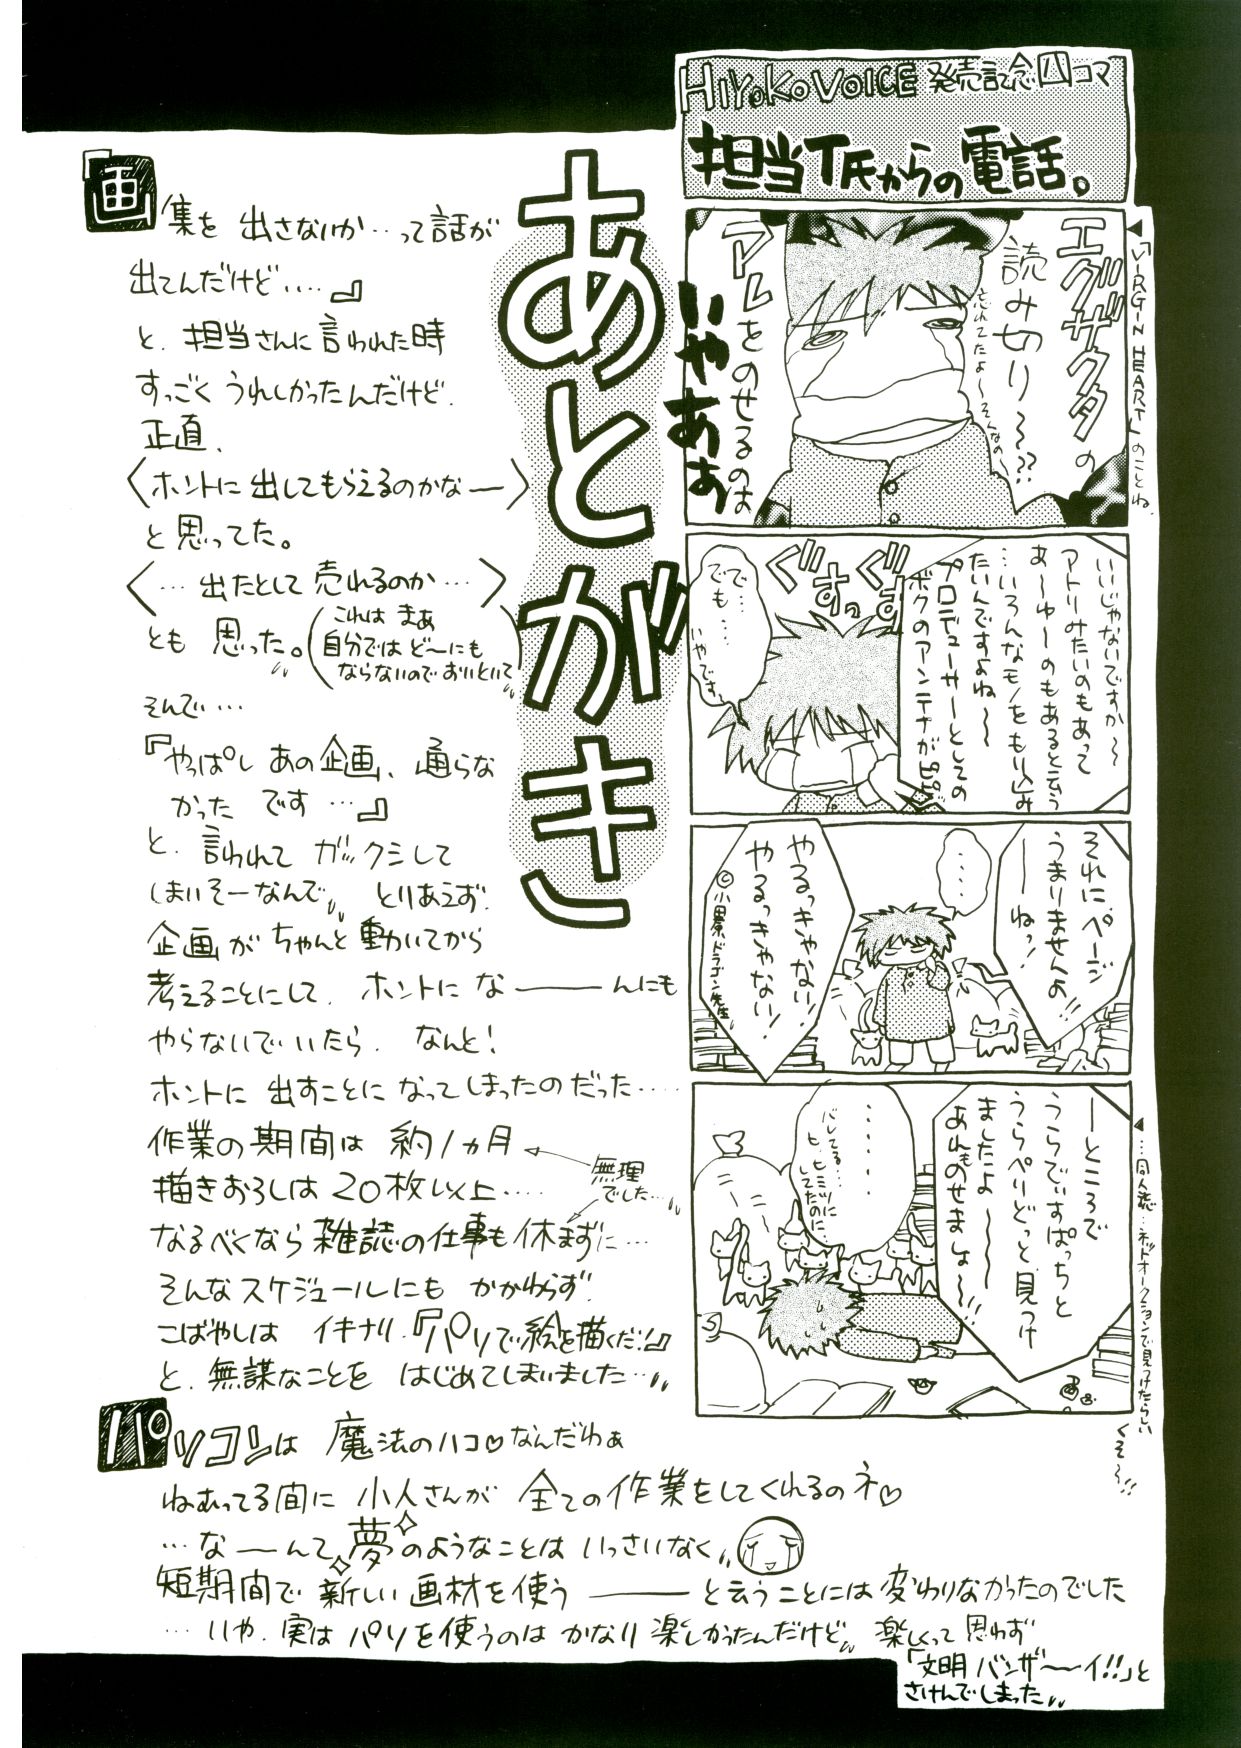 HiYoKoVOICE 発売記念四コマ
担当T氏からの電話。
エグザクタの
読み切り〜??
忘れてたよ〜そんなの
アレをのせるのは
いやあぁ
◀「VIRGIN HEART」のことね。
いいじゃないですか〜
アトリみたいのもあって
あ〜ゆーのもあると云う
…いろんなモノをもり込み
たいんですよね〜
プロデューサーとしての
ボクのアンテナがピピ
ぐすっ
ぐす
でで…
でも…
いやです
それにページ
うまりませんよ!!
――ねっ!
・・・・
やるっきゃない!
やるっきゃない!
©小田原ドラゴン先生
―ところで
うらでぃすぱっちと
うらぺりどっと見つけ
ましたよ〜〜
あれものせましょ〜!!
・・・・・・
バレてる…
ヒ、ヒミツに
してたのに
◀…同人誌…ネットオークションで見つけたらしい
くそ〜!!
あとがき
『画集を出さないか…って話が
出てんだけど….』
と、担当さんに言われた時
すっごくうれしかったんだけど、
正直、
〈ホントに出してもらえるのかなー〉
と思ってた。
〈…出たとして売れるのか…〉
とも思った。
(これはまぁ
自分ではど〜にも
ならないのでおいといて)
そんで…
『やっぱしあの企画、通らな
かったです…』
と、言われてガックシして
しまいそーなんで、とりあえず、
企画がちゃんと動いてから
考えることにして、ホントにな――んにも
やらないでいたら、なんと!
ホントに出すことになってしまったのだった……
作業の期間は約1ヵ月
描きおろしは20枚以上……
無理
でした…
なるべくなら雑誌の仕事も休まずに…
そんなスケジュールにもかかわらず、
こばやしはイキナリ、『パソで絵を描くだ!』
と、無謀なことをはじめてしまいました…
パソコンは魔法のハコ♡なんだわぁ
ねむってる間に小人さんが全ての作業をしてくれるのネ♡
…な――んて夢のようなことはいっさいなく
短期間で新しい画材を使う――と云うことには変わりなかったのでした
…いや、実はパソを使うのはかなり楽しかったんだけど、楽しくって思わず
「文明バンザ〜イ!!」と
さけんでしまった